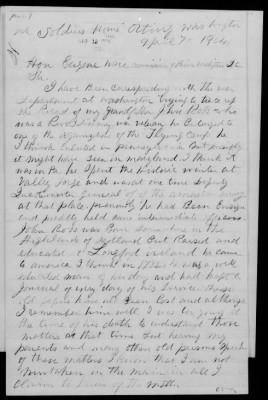 Page 1
Soldiers Home Orting Washington
April 7th 1904
Hon Eugene Ware
Sir.
I have Been corresponding with the war
Department at Washington trying to trace up
the Record of my Grandfather John Ross who
was a Revolutionary
one of the Regiments of the Flying Camp he
I think Enlisted in pennsylvania But possibly
it might have been in maryland. I think it
was in Pa he Spent the historic winter at
Valley forge and was at one time Deputy
General of the
at that place, previously he had Been Ensign
and probably held some intermediate offices
John Ross was Born some where in the
Highlands of Scotland But Raised and
educated in Longford Ireland he came
to america I think in 1772 he was a well
educated man of history and had kept a
Journal of every day of his service these
old papers have all been lost and although
I remember him well I was too young at
the time of his death to understand those
matters at that time but having my
parents and many other old persons speak
of these matters I know that I am not
mistaken in the main or all I
claim to know of the matter
over